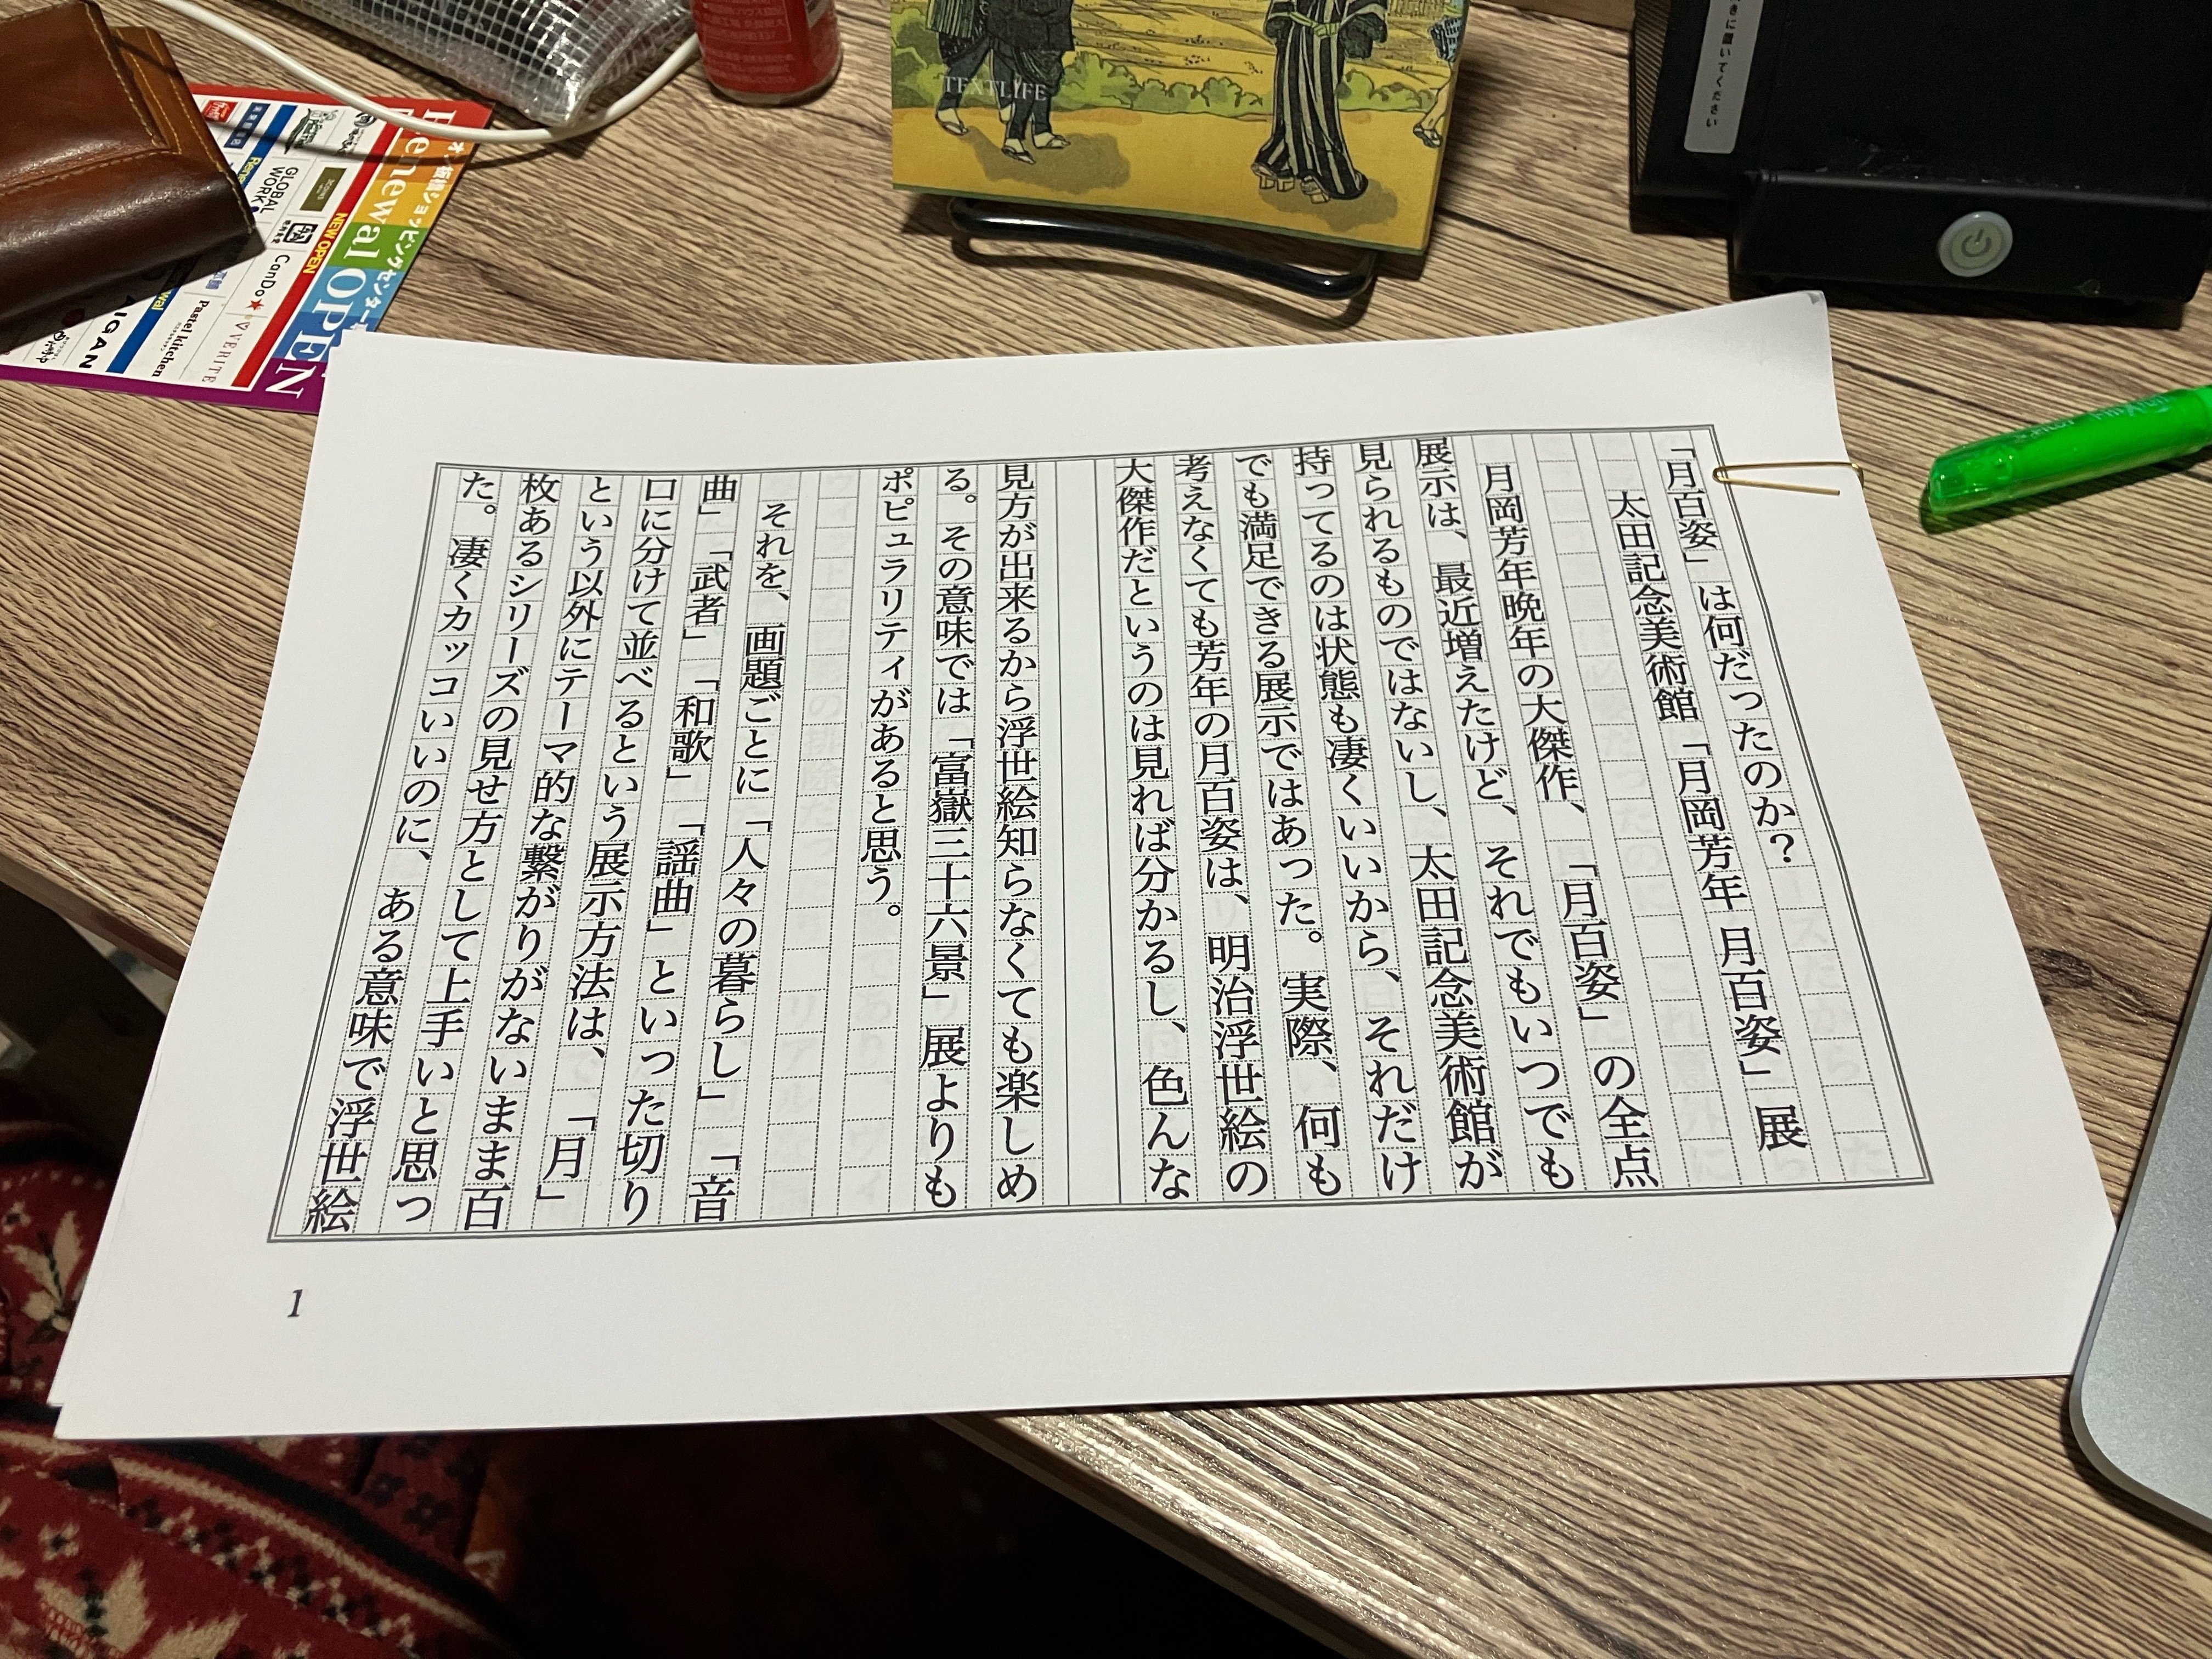 「月百姿」は何だったのか？
太田記念美術館「月岡芳年 月百姿」展
月岡芳年晩年の大傑作、「月百姿」の全点
展示は、最近増えたけど、それでもいつでも
見られるものではないし、太田記念美術館が
持ってるのは状態も凄くいいから、それだけ
でも満足できる展示ではあった。実際、何も
考えなくても芳年の月百姿は、明治浮世絵の
大傑作だというのは見れば分かるし、色んな
見方が出来るから浮世絵知らなくても楽しめ
る。その意味では「富嶽三十六景」展よりも
ポピュラリティがあると思う。
それを、画題ごとに「人々の暮らし」「音
曲」「武者」「和歌」「謡曲」といった切り
口に分けて並べるという展示方法は、「月」
という以外にテーマ的な繋がりがないまま百
枚あるシリーズの見せ方として上手いと思っ
た。凄くカッコいいのに、ある意味で浮世絵
1
TEXTLIFE
きに置いてください
Renewal OPEN
NEW OPEN
GLOBAL WORK
CanDo
VERITE
Pastel kitchen